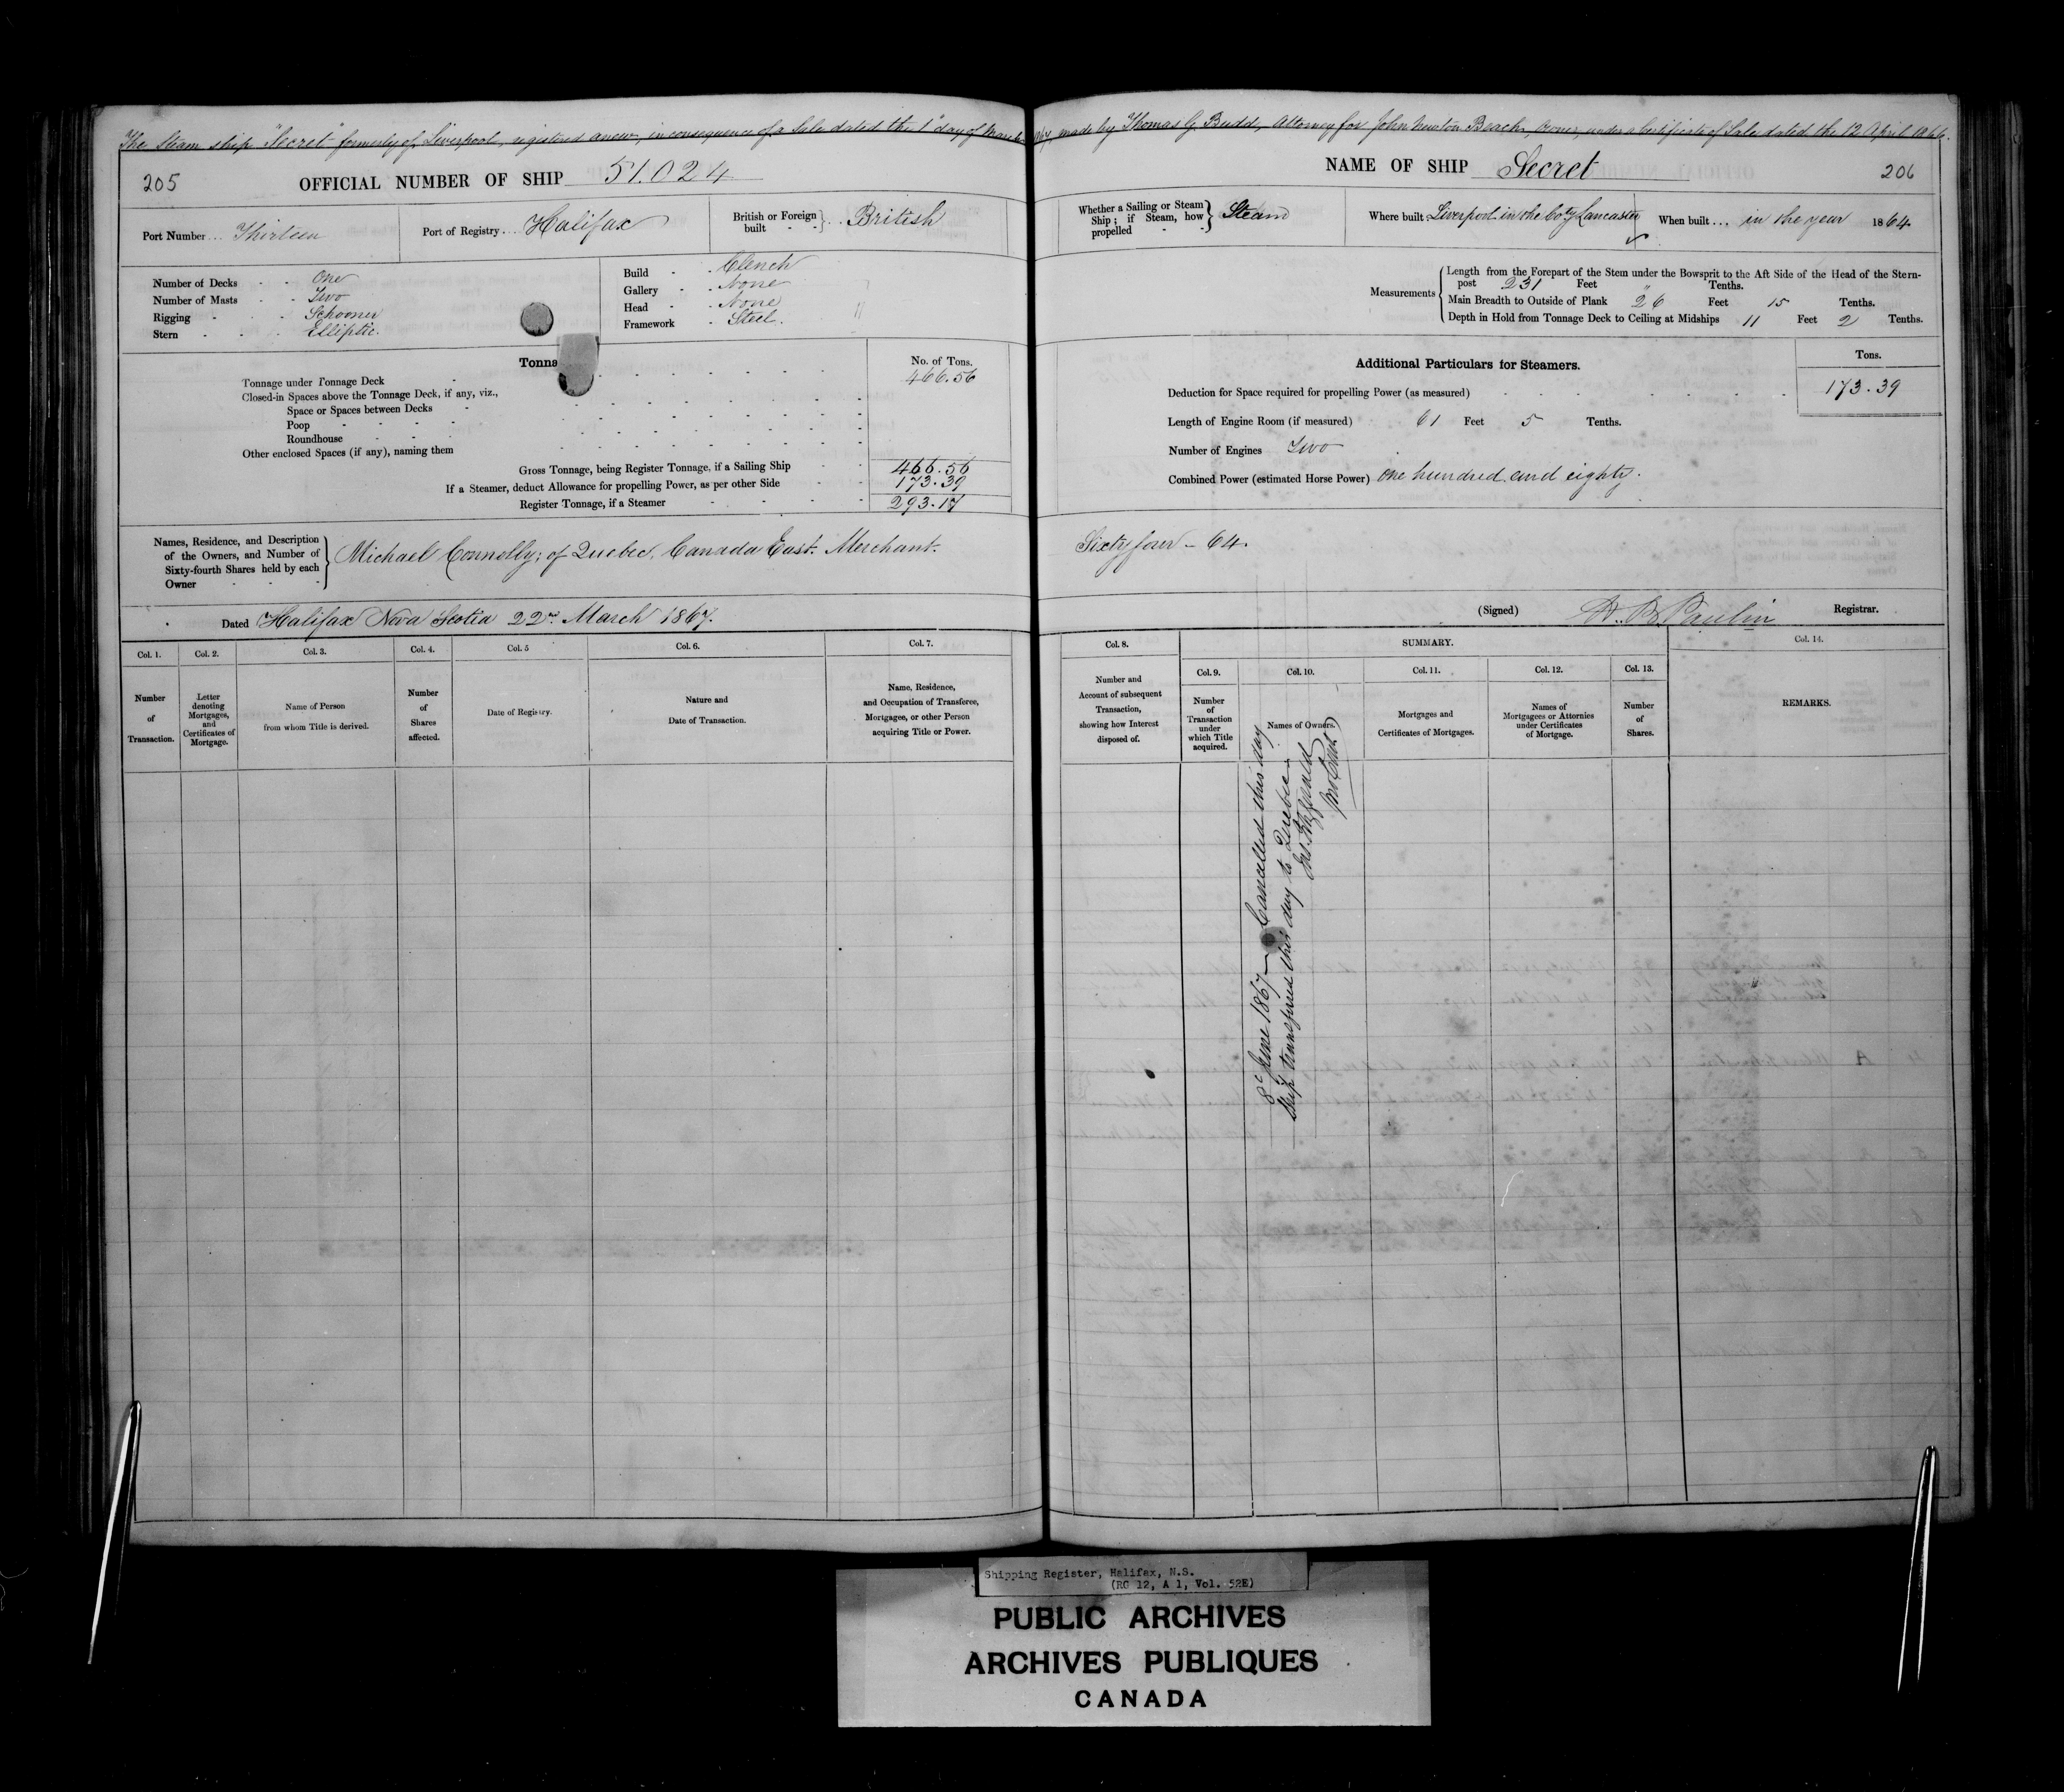 The Steam ship "Secret" formerly of Liverpool, registered anew, in consequence of a Sale dated the 1st day of March 1867, made by Thomas G. Budd, Attorney for John Newton Beach, Owner, under a Certificate of Sale dated the 12 April 1866.
205
OFFICIAL NUMBER OF SHIP 51.024
Port Number... Thirteen
Port of Registry... Halifax
British or Foreign built - - } .. British
Number of Decks - - One
Number of Masts - - Two
Rigging - - - Schooner
Stern - - - Elliptic.
Build - . Clench
Gallery - . None
Head - . None
Framework - Steel.
Tonna
No. of Tons.
Tonnage under Tonnage Deck - 466.56
Closed-in Spaces above the Tonnage Deck, if any, viz.,
Space or Spaces between Decks
Poop
Roundhouse
Other enclosed Spaces (if any), naming them
Gross Tonnage, being Register Tonnage, if a Sailing Ship 466.56
If a Steamer, deduct Allowance for propelling Power, as per other Side 173.39
Register Tonnage, if a Steamer 293.17
Names, Residence, and Description
of the Owners, and Number of
Sixty-fourth Shares held by each
Owner
Michael Connolly; of Quebec, Canada East. Merchant.
Dated Halifax Nova Scotia 22nd March 1867.
Col. 1. Col. 2. Col. 3. Col. 4. Col. 5 Col. 6. Col. 7.
Number of Transaction.
Letter denoting Mortgages, and Certificates of Mortgage.
Name of Person from whom Title is derived.
Number of Shares affected.
Date of Registry.
Nature and Date of Transaction.
Name, Residence, and Occupation of Transferee, Mortgagee, or other Person acquiring Title or Power.
NAME OF SHIP Secret
206
Whether a Sailing or Steam Ship; if Steam, how propelled - - } Steam
Where built Liverpool in the Coty Lancaster
When built... in the year 1864.
Measurements
Length from the Forepart of the Stem under the Bowsprit to the Aft Side of the Head of the Stern-
post 231 Feet " Tenths.
Main Breadth to Outside of Plank 26 Feet 15 Tenths.
Depth in Hold from Tonnage Deck to Ceiling at Midships 11 Feet 2 Tenths.
Additional Particulars for Steamers.
Tons.
Deduction for Space required for propelling Power (as measured) 173.39
Length of Engine Room (if measured) 61 Feet 5 Tenths.
Number of Engines Two
Combined Power (estimated Horse Power) One hundred and eighty.
Sixty four - 64.
(Signed) Paulin Registrar.
Col. 8.
SUMMARY.
Col. 14.
Col. 9. Col. 10. Col. 11. Col. 12. Col. 13.
Number and Account of subsequent Transaction, showing how Interest disposed of.
Number of Transaction under which Title acquired.
Names of Owners.
Mortgages and Certificates of Mortgages.
Names of Mortgagees or Attornies under Certificates of Mortgage.
Number of Shares.
REMARKS.
8th June 1867 - Cancelled this day
Ship transferred this day to Quebec -
Fitzgerald
Shipping Register, Halifax, N.S.
(RG 12, A 1, Vol. 52E)
PUBLIC ARCHIVES
ARCHIVES PUBLIQUES
CANADA